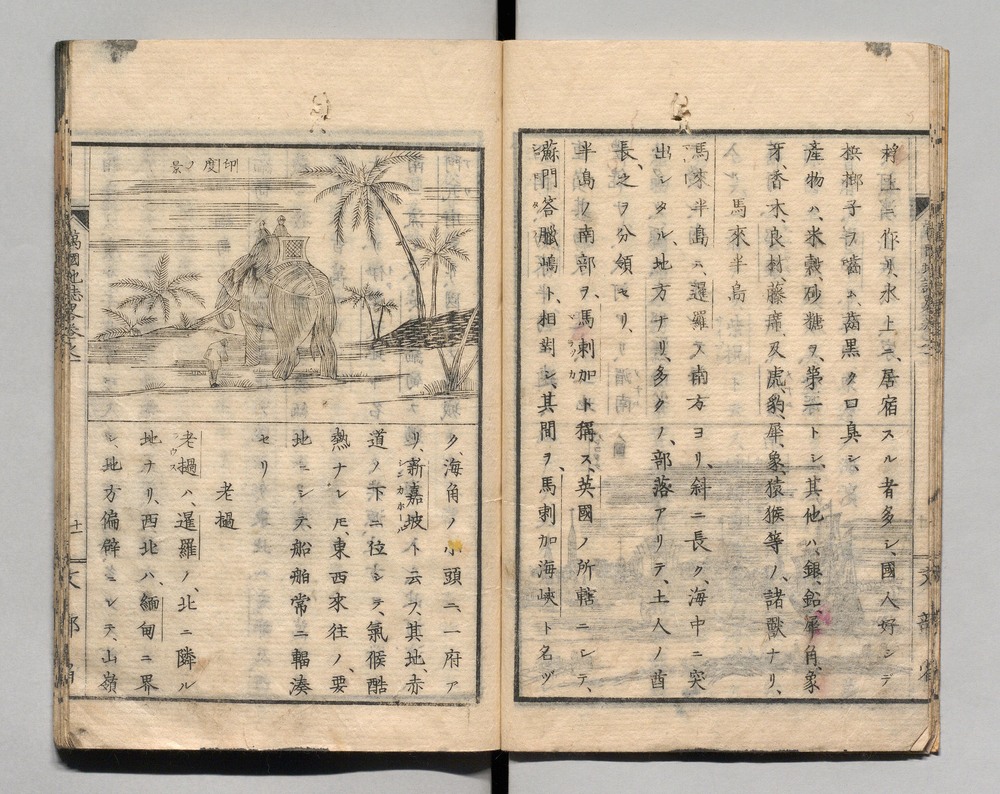 水上ニ、居宿スル者多シ、國人好ンデ
檳榔子ヲ嚙ム、齒黒ク口臭シ、
産物ハ、米穀、砂糖ヲ、第一トシ、其他ハ、銀、鉛、犀角、象
牙、香木、良材、藤席、及虎豹、犀、象、猿猴等ノ、諸獸ナリ、
馬來半島
馬來半島ハ、暹羅ノ南方ヨリ、斜ニ長ク、海中ニ突
出シタル、地方ナリ、多クノ、部落アリテ、土人ノ酋
長、之ヲ分領セリ、
半島ノ南部ヲ、馬剌加ト稱ス、英國ノ所轄ニシテ、
蘇門答臘嶋ト、相對シ、其間ヲ、馬剌加海峽ト名ヅ
文部省
印度ノ景
ク、海角ノ小頭ニ、一府ア
リ、新嘉坡ト云フ、其地、赤
道ノ下ニ位シテ、氣候酷
熱ナレ𪜈、東西來往ノ、要
地ニシテ、船舶常ニ輻湊
セリ
老撾
老撾ハ、暹羅ノ、北ニ隣ル
地ナリ、西北ハ、緬甸ニ界
シ、地方偏僻ニシテ、山嶺
萬國地誌畧卷之一
十一
文部省